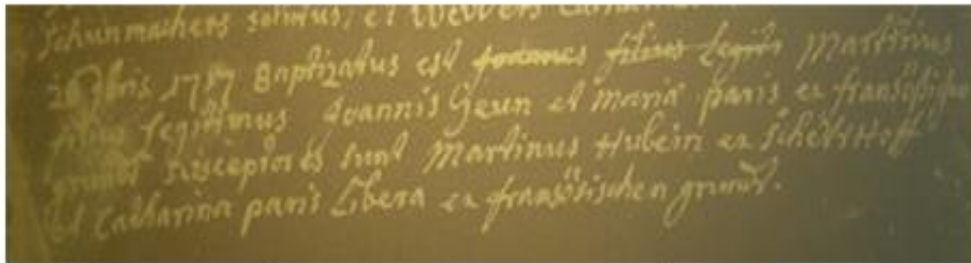 Schunmachers solutus, et Wewers
26 7bris 1717 Baptizatus est joannes filius legiti Martinus
filius legitimus Joannis Geun et Maria paris ex fransösischen
grundt suscepiores sunt Martinus Hubein ex Schetshoff
et Catharina paris Libera ex fransösischen grundt.